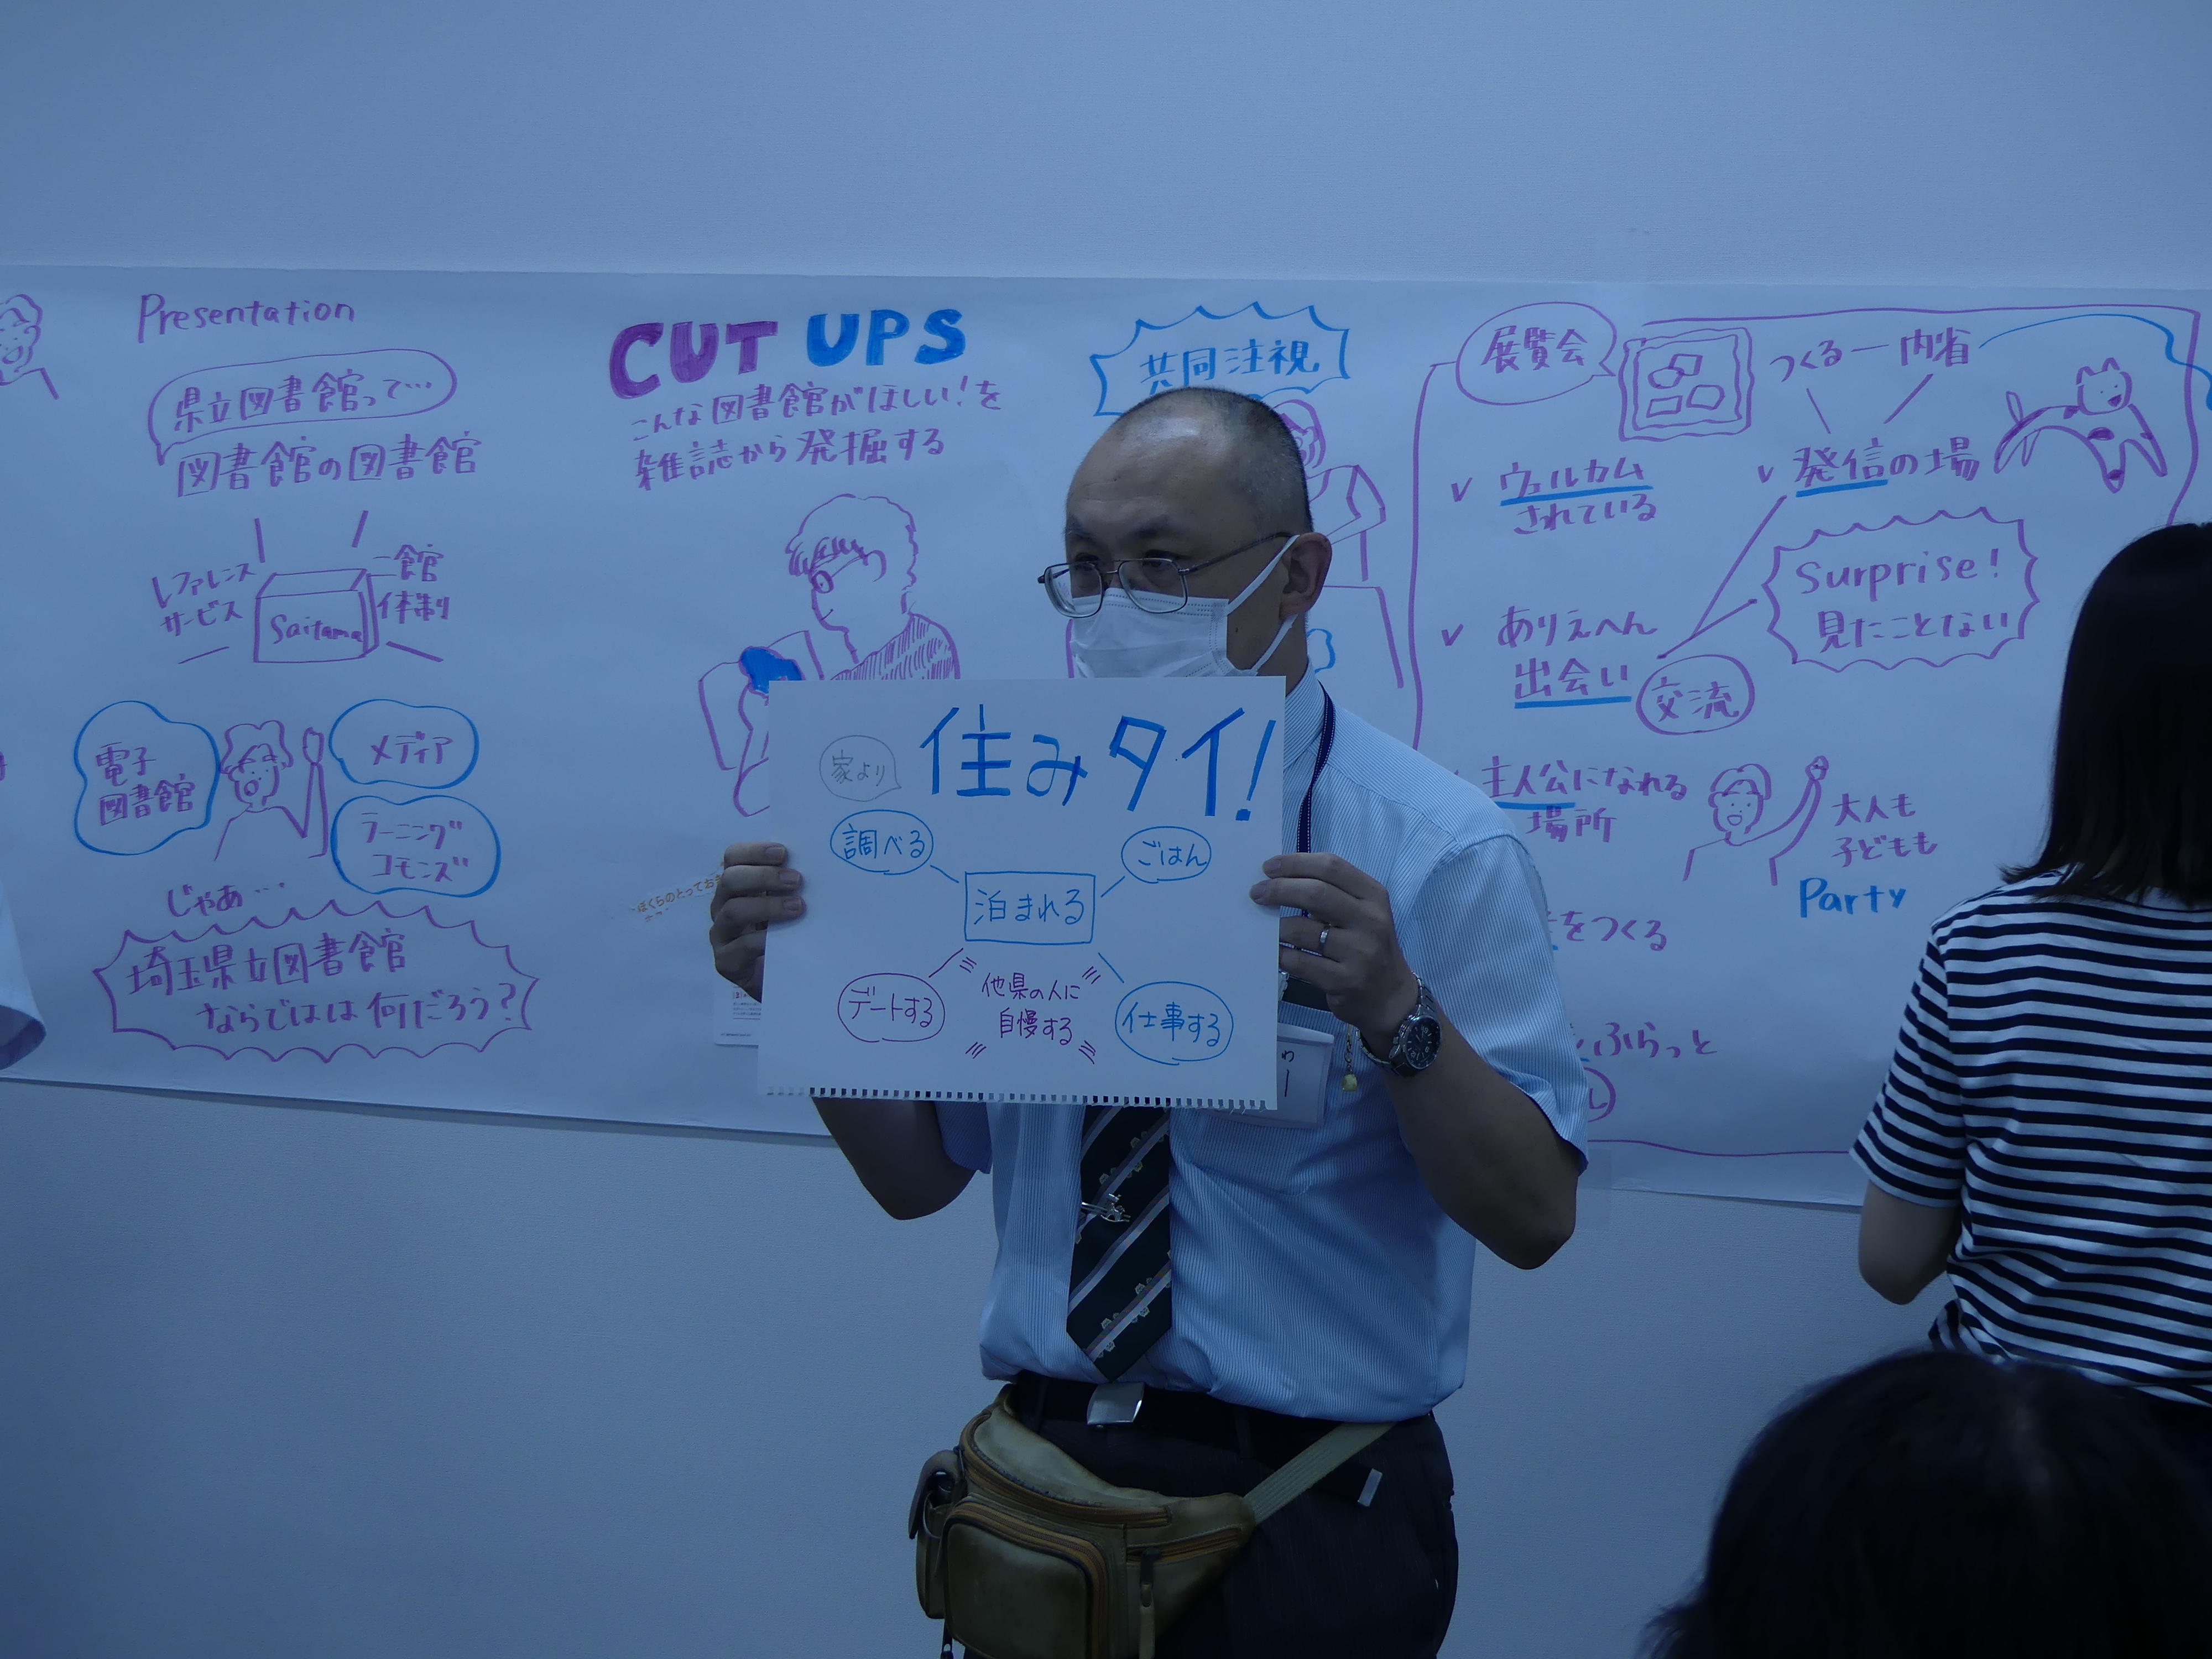 Presentation
県立図書館って…
図書館の図書館
レファレンス
サービス
Saitama
一館
体制
電子
図書館
メディア
ラーニング
コモンズ
じゃあ…
埼玉県立図書館
ならではは何だろう？
CUT UPS
こんな図書館がほしい！を
雑誌から発掘する
共同注視
展覧会
つくるー内省
✓ ウェルカム
されている
✓ 発信の場
Surprise!
見たことない
✓ ありえへん
出会い
交流
主人公になれる
場所
大人も
子どもも
Party
をつくる
ふらっと
家より
住みタイ！
調べる
ごはん
泊まれる
デートする
他県の人に
自慢する
仕事する